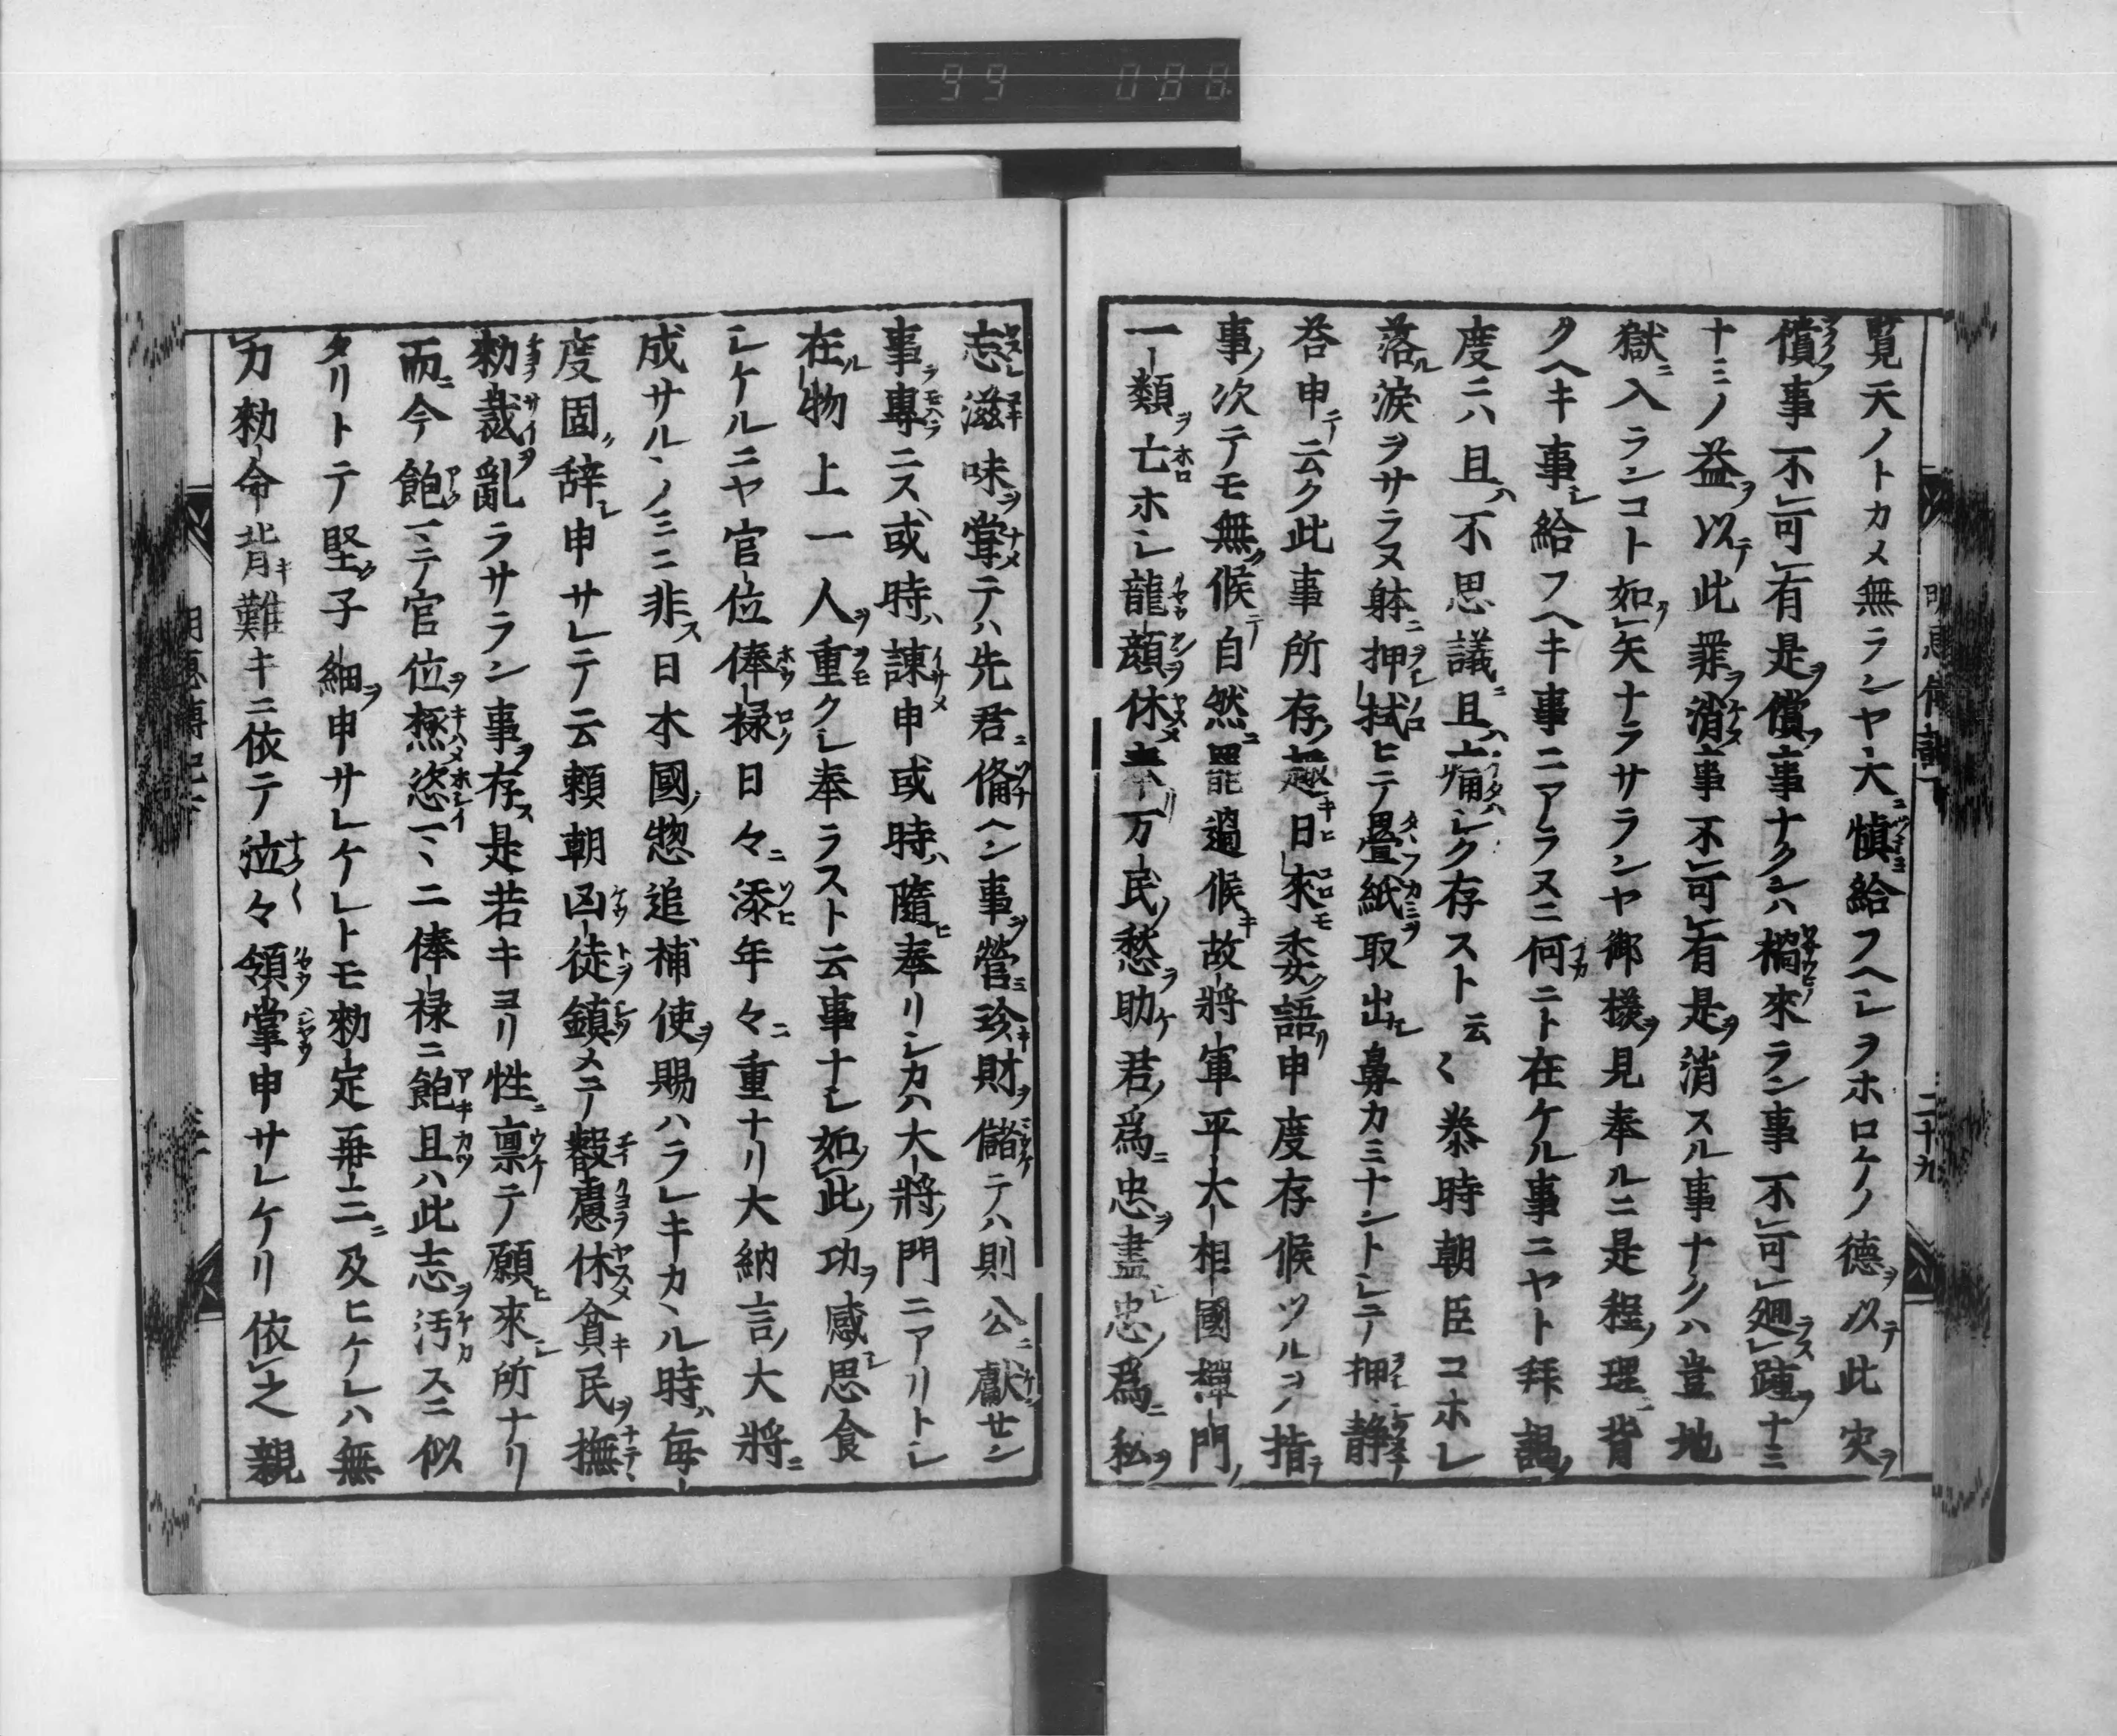 99 088
覧天ノトカメ無ランヤ大ニ慎給フヘシヲホロケノ德ヲ以テ此灾ヲ
償事不可有是ヲ償フ事ナクンハ禍來ラン事不可廻踵ヲナミ
ナミノ益ヲ以テ此罪ヲ消事不可有是ヲ消スル事ナクハ豈地
獄ニ入ランコト如矢ナラサランヤ御様ヲ見奉ルニ是程ノ理ニ背
クヘキ事シ給フヘキ事ニアラヌニ何ニト在ケル事ニヤト拜謁ノ
度ニハ且ハ不思議ニ且ハ痛シク存スト云々泰時朝臣コホレ
落ル涙ヲサラヌ躰ニ押拭ヒテ疊紙ヲ取出シ鼻カミナントシテ押静テ
荅申テ云ク此事所存ノ趣キ日來委ク語リ申度存候ツルヲ指テ
事ノ次テモ無ク候テ自然ニ罷過候キ故將軍平大相國禪門ノ
一類ヲ亡ホシ龍顔ヲ休奉リ万民ノ愁ヲ助ケ君ノ爲ニ忠ヲ盡シ忠ノ爲ニ私ヲ
明惠傳記下
二十九
志レ滋味ヲ甞テハ先君ニ備ヘン事ヲ營ミ珍キ財ヲ儲テハ則公ニ獻セン
事ヲ專ニス或時ハ諫申或時ハ隨ヒ奉リシカハ大將ノ門ニアリトシ
在ル物上一人ヲ重クシ奉ラスト云事ナシ如此ノ功ヲ感シ思食
シケルニヤ官位俸禄日々ニ添年々ニ重ナリ大納言ノ大將ニ
成サルヽノミニ非ス日本國ノ惣追補使ヲ賜ハラレキカヽル時ハ毎
度固ク辞シ申サレテ云頼朝凶徒ヲ鎮メテ叡慮ヲ休メ貧キ民ヲ撫テ
勅裁ヲ亂ラサラン事ヲ存ス是若キヨリ性ニ禀テ願ヒ來シ所ナリ
而ニ今飽マテ官位ヲ極メ恣マヽニ俸禄ニ飽キ且ハ此志ヲ汚スニ似
タリトテ堅ク子細ヲ申サレケレトモ勅定再三ニ及ヒケレハ無
力勅命背キ難キニ依テ泣々領掌申サレケリ依之親
明惠傳記下